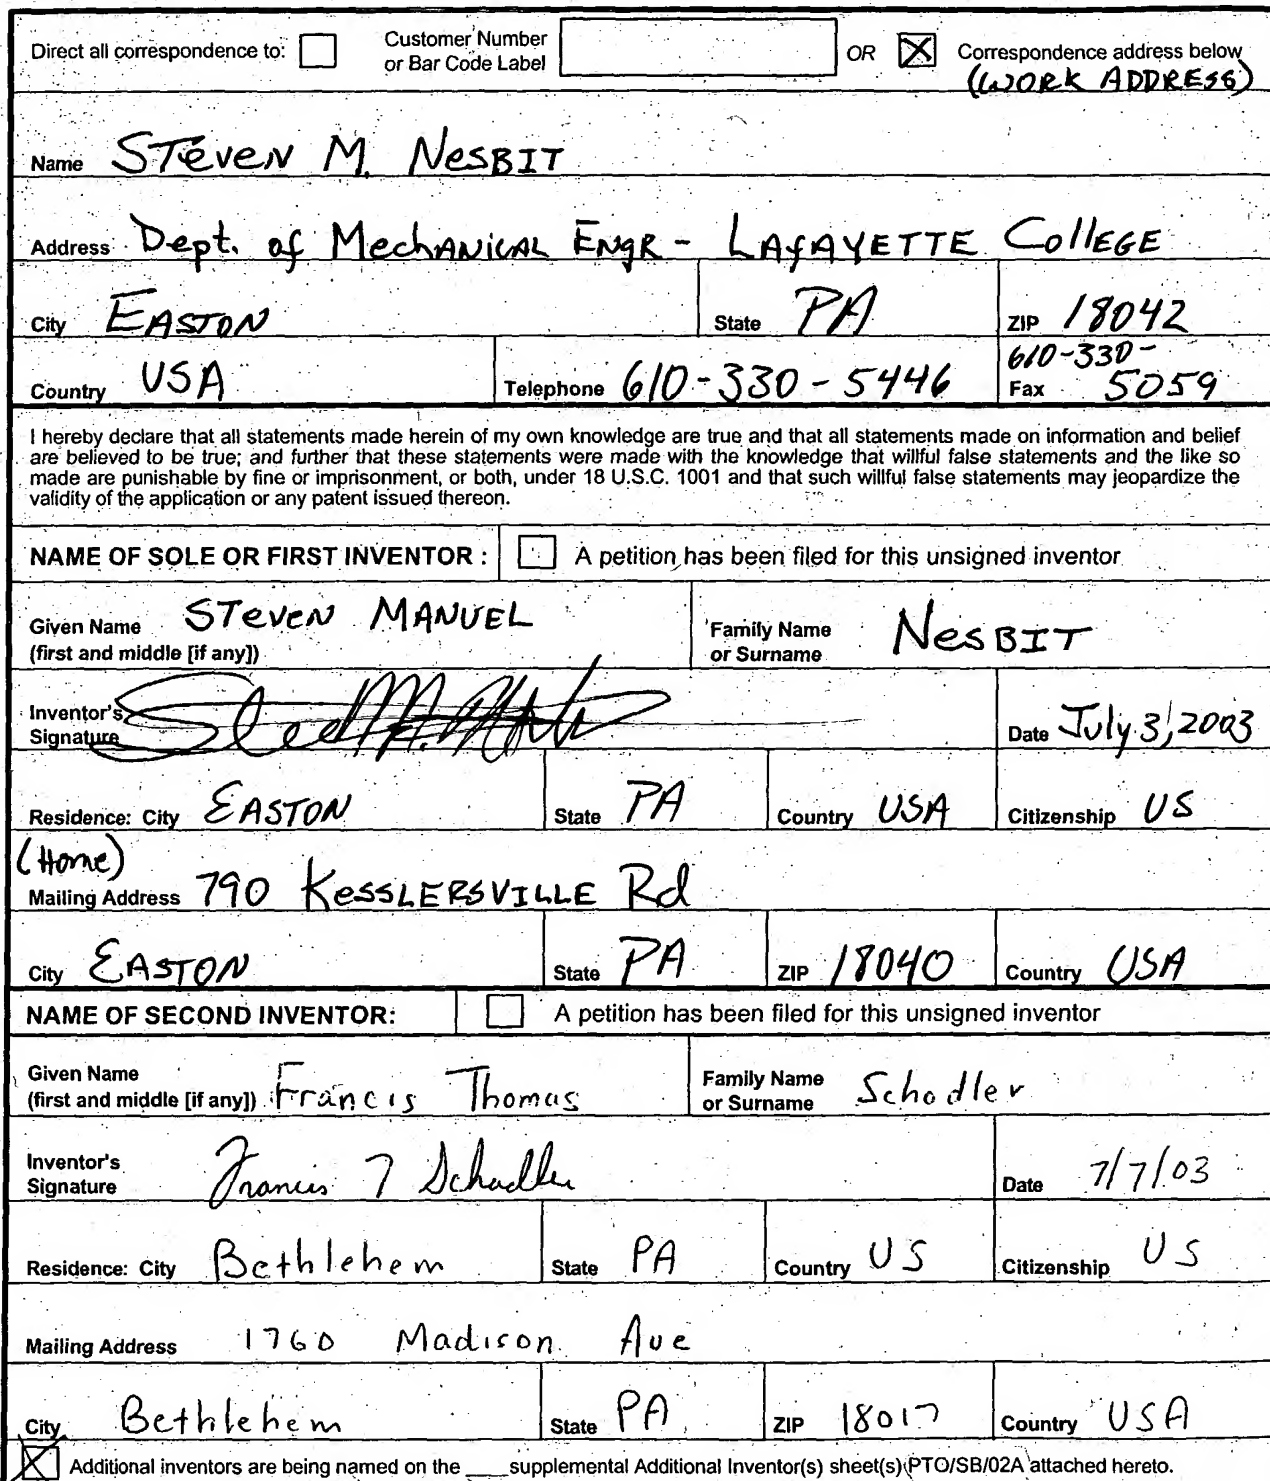 Direct all correspondence to: Customer Number or Bar Code Label OR Correspondence address below
(WORK ADDRESS)
Name STeveN M. NesBIT
Address Dept. of MechANICAL ENgR - LAfAYETTE CollEGE
City EASTON State PA ZIP 18042
Country USA Telephone 610-330-5446 Fax 610-330-5059
I hereby declare that all statements made herein of my own knowledge are true and that all statements made on information and belief
are believed to be true; and further that these statements were made with the knowledge that willful false statements and the like so
made are punishable by fine or imprisonment, or both, under 18 U.S.C. 1001 and that such willful false statements may jeopardize the
validity of the application or any patent issued thereon.
NAME OF SOLE OR FIRST INVENTOR : A petition has been filed for this unsigned inventor
Given Name (first and middle [if any]) STeveN MANUEL Family Name or Surname NesBIT
Inventor's Signature Date July 3, 2003
Residence: City EASTON State PA Country USA Citizenship US
(Home)
Mailing Address 790 KesSLERSVILLE Rd
City EASTON State PA ZIP 18040 Country USA
NAME OF SECOND INVENTOR: A petition has been filed for this unsigned inventor
Given Name (first and middle [if any]) Francis Thomas Family Name or Surname Schadler
Inventor's Signature Francis T Schadler Date 7/7/03
Residence: City Bethlehem State PA Country US Citizenship US
Mailing Address 1760 Madison Ave
City Bethlehem State PA ZIP 18017 Country USA
Additional inventors are being named on the ___ supplemental Additional Inventor(s) sheet(s) PTO/SB/02A attached hereto.